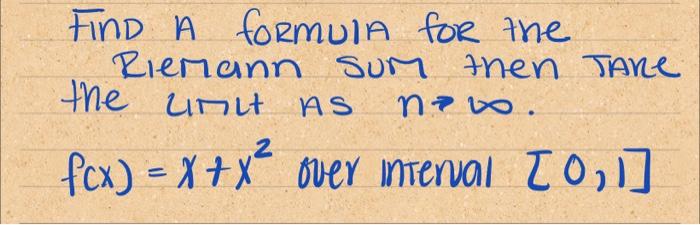 FIND A FORMULA FOR the
RIEMANN SUM then TAKE
the LIMIT AS n→∞.
f(x) = x+x² over interval [0,1]